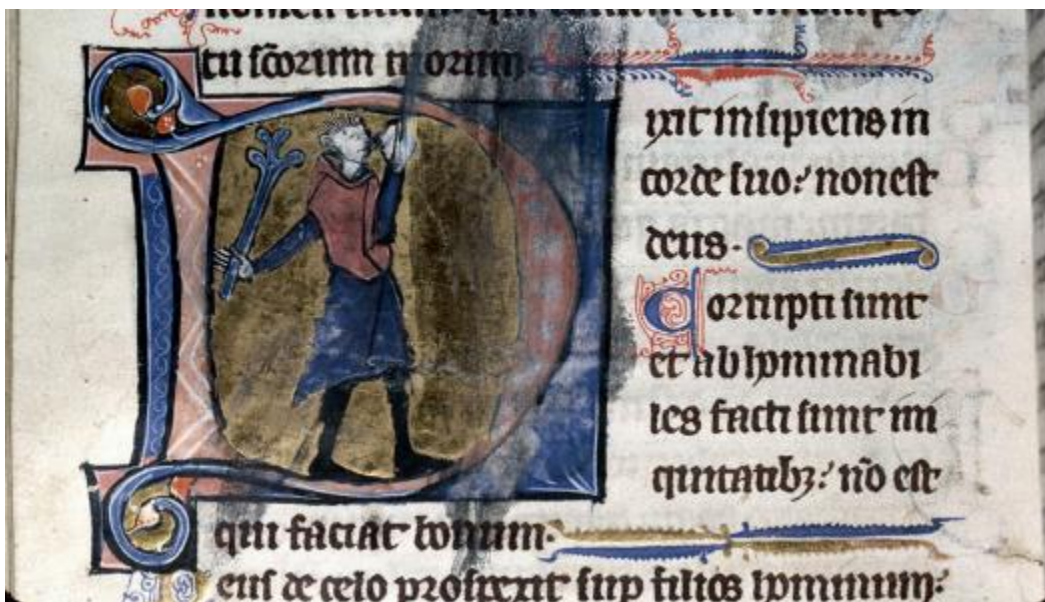 nomen tuum qui
tu sc̄orum tuorum
D
ixit insipiens in
corde suo: non est
deus.
Corrupti sunt
et abhominabi
les facti sunt in i
quitatibꝫ: nō est
qui faciat bonum.
eus de celo prospexit sup filios hominum: